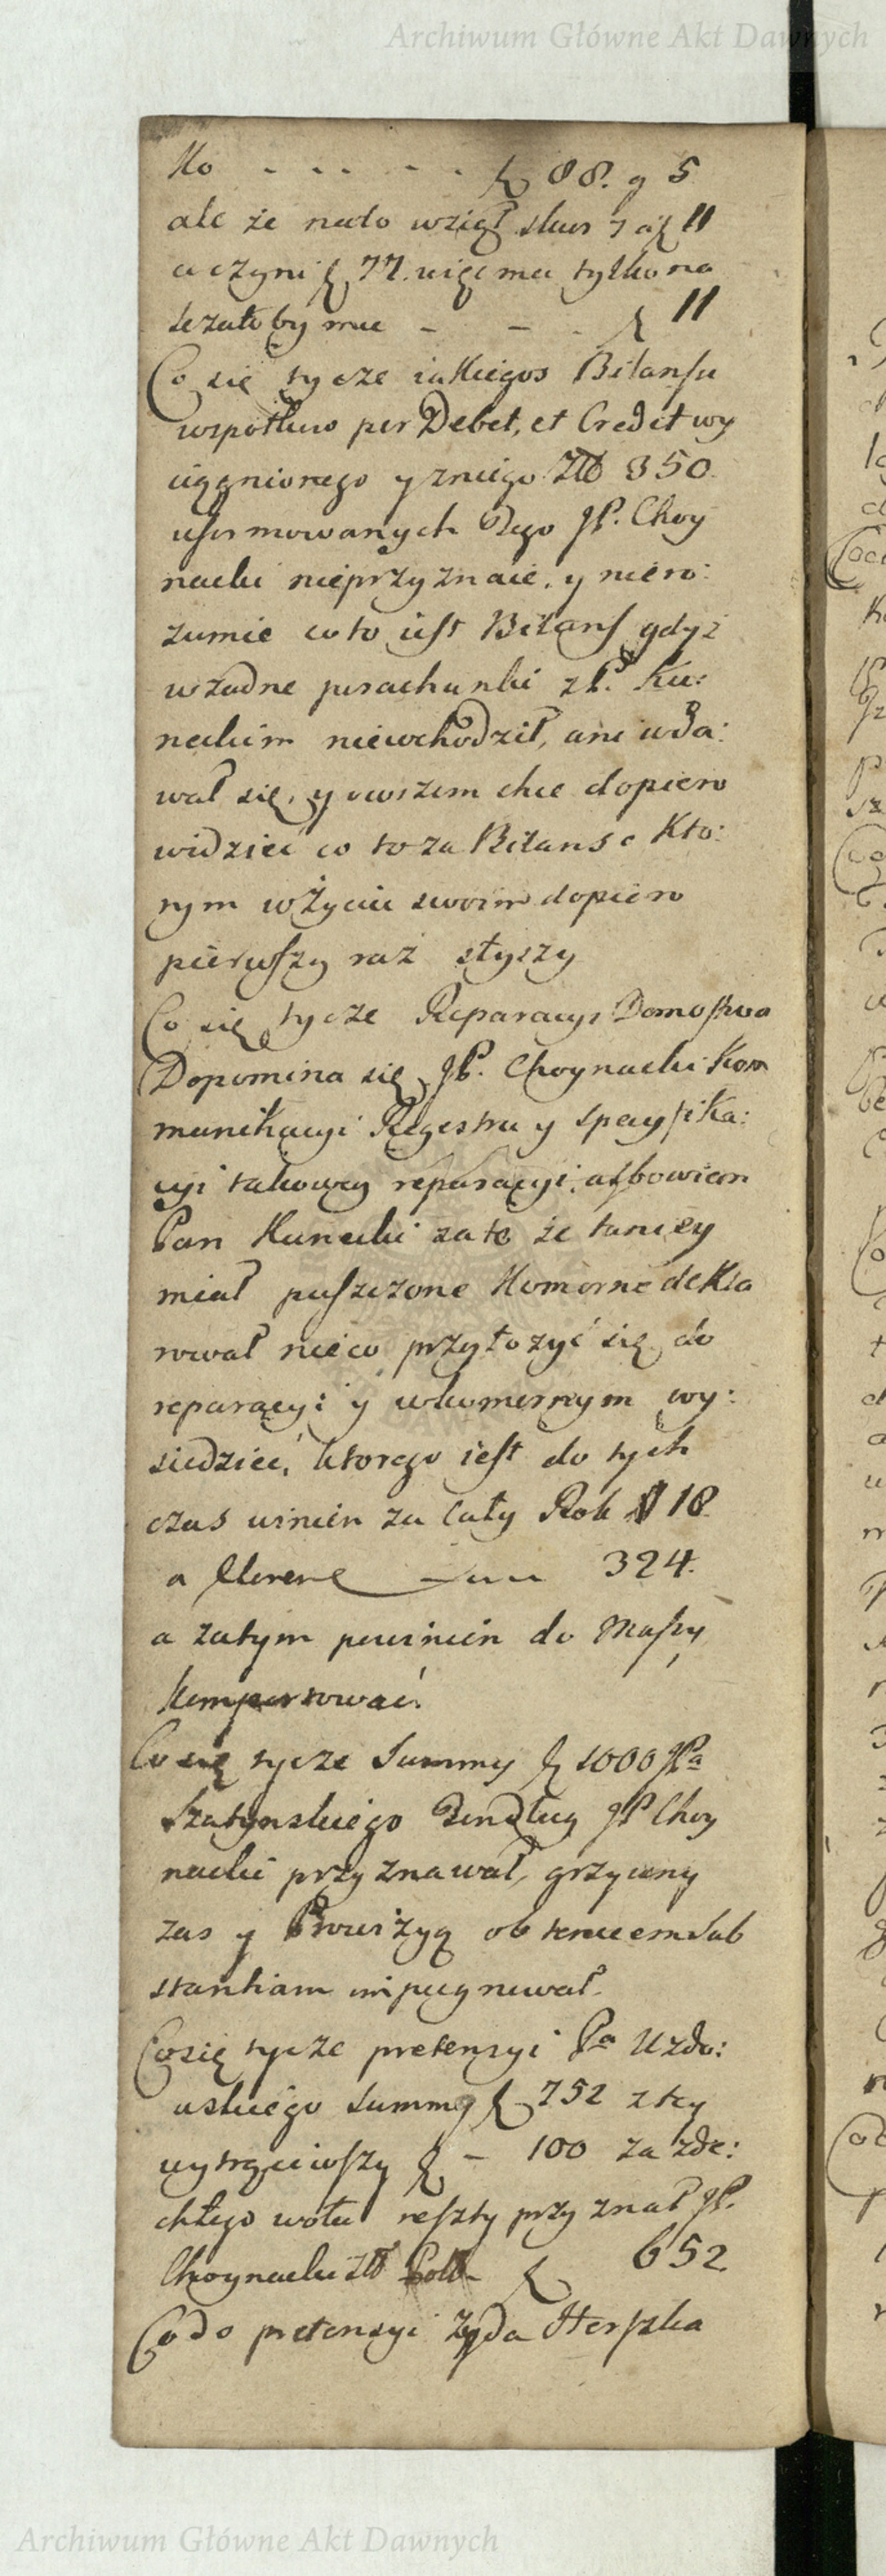 Archiwum Główne Akt Dawnych
Ko - - - - - 88. g 5
ale że na to wziął skur 7 a 11
uczyni 77. więc mu tylko na
leżałoby mie - - - 11
Co się tycze iakiegos Bilansu
wspołkuo per Debet, et Credit wy
ciągnionego y zniego Zł 350
uformowanych Tego JP. Choy
nacki nieprzyznaie, y niero:
zumie co to iest Bilans gdyż
wżadne porachunki z P. Ku:
neckim niewchodził, ani wda:
wał się, y owszem chce dopiero
widzieć co to za Bilans o Kto:
rym w życiu swoim dopiero
pierwszy raz słyszy
Co się tycze Reparacyi Domostwa
Dopomina się JP. Choynacki Kom
munikacyi Regestru y specyfika:
cyi takowey reparacyi, albowiem
Pan Kunecki za to że taniey
miał puszczone Komorne dekla
rował nieco przyłozyć się do
reparacyi y wkomornym wy:
siedzieć, ktorego iest do tych
czas winien za cały Rok 18
a 324.
a zatym powinien do Massy
komportować.
Co się tycze Summy 1000 JPa
Szatynskiego Ten dług JP Choy
nacki przyznawał, grzywny
zas y Prowizyą ob tenuem Sub
stantiam impugnował.
Co się tycze pretensyi Pa Uzdo:
wskiego Summy 752 z tey
wytrąciwszy - 100 za zde:
chłego wołu reszty przyznał JP.
Choynacki Zł Pol 652
Co do pretensyi Zyda Herszka
Archiwum Główne Akt Dawnych